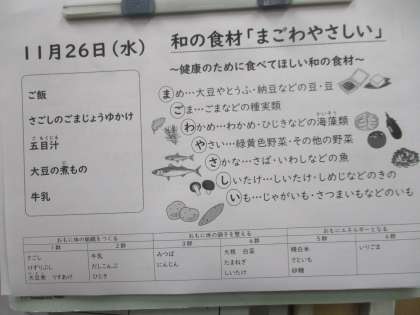 11月26日(水)
和の食材「まごわやさしい」
～健康のために食べてほしい和の食材～
ご飯
さごしのごまじょうゆかけ
五目汁
大豆の煮もの
牛乳
ま め…大豆やとうふ・納豆などの豆・豆
ご ま…ごまなどの種実類
わ かめ…わかめ・ひじきなどの海藻類
や さい…緑黄色野菜・その他の野菜
さ かな…さば・いわしなどの魚
し いたけ…しいたけ・しめじなどのきの
い も…じゃがいも・さつまいもなどのいも
おもに体の組織をつくる
おもに体の調子を整える
おもにエネルギーとなる
1群 2群 3群 4群 5群 6群
さごし 牛乳 みつば 大根 白菜 精白米 いりごま
けずりぶし だしこんぶ にんじん たまねぎ さといも
大豆煮 うすあげ ひじき しいたけ 砂糖